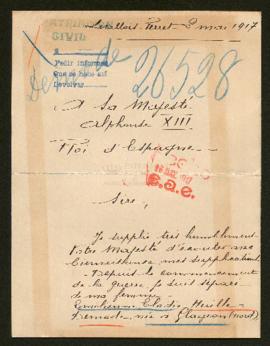 Levallois-Perret - 2 mai 1917
CIVIL
Pedir informes
Que se hable aut
Devolver
26528
A Sa Majesté
Alphonse XIII
Roi d'Espagne
Sire,
Je supplie très humblement
Votre Majesté d'écouter avec
bienveillance mes supplications
Depuis le commencement
de la guerre, je suis séparé
de ma femme
née à Glageon (Nord)